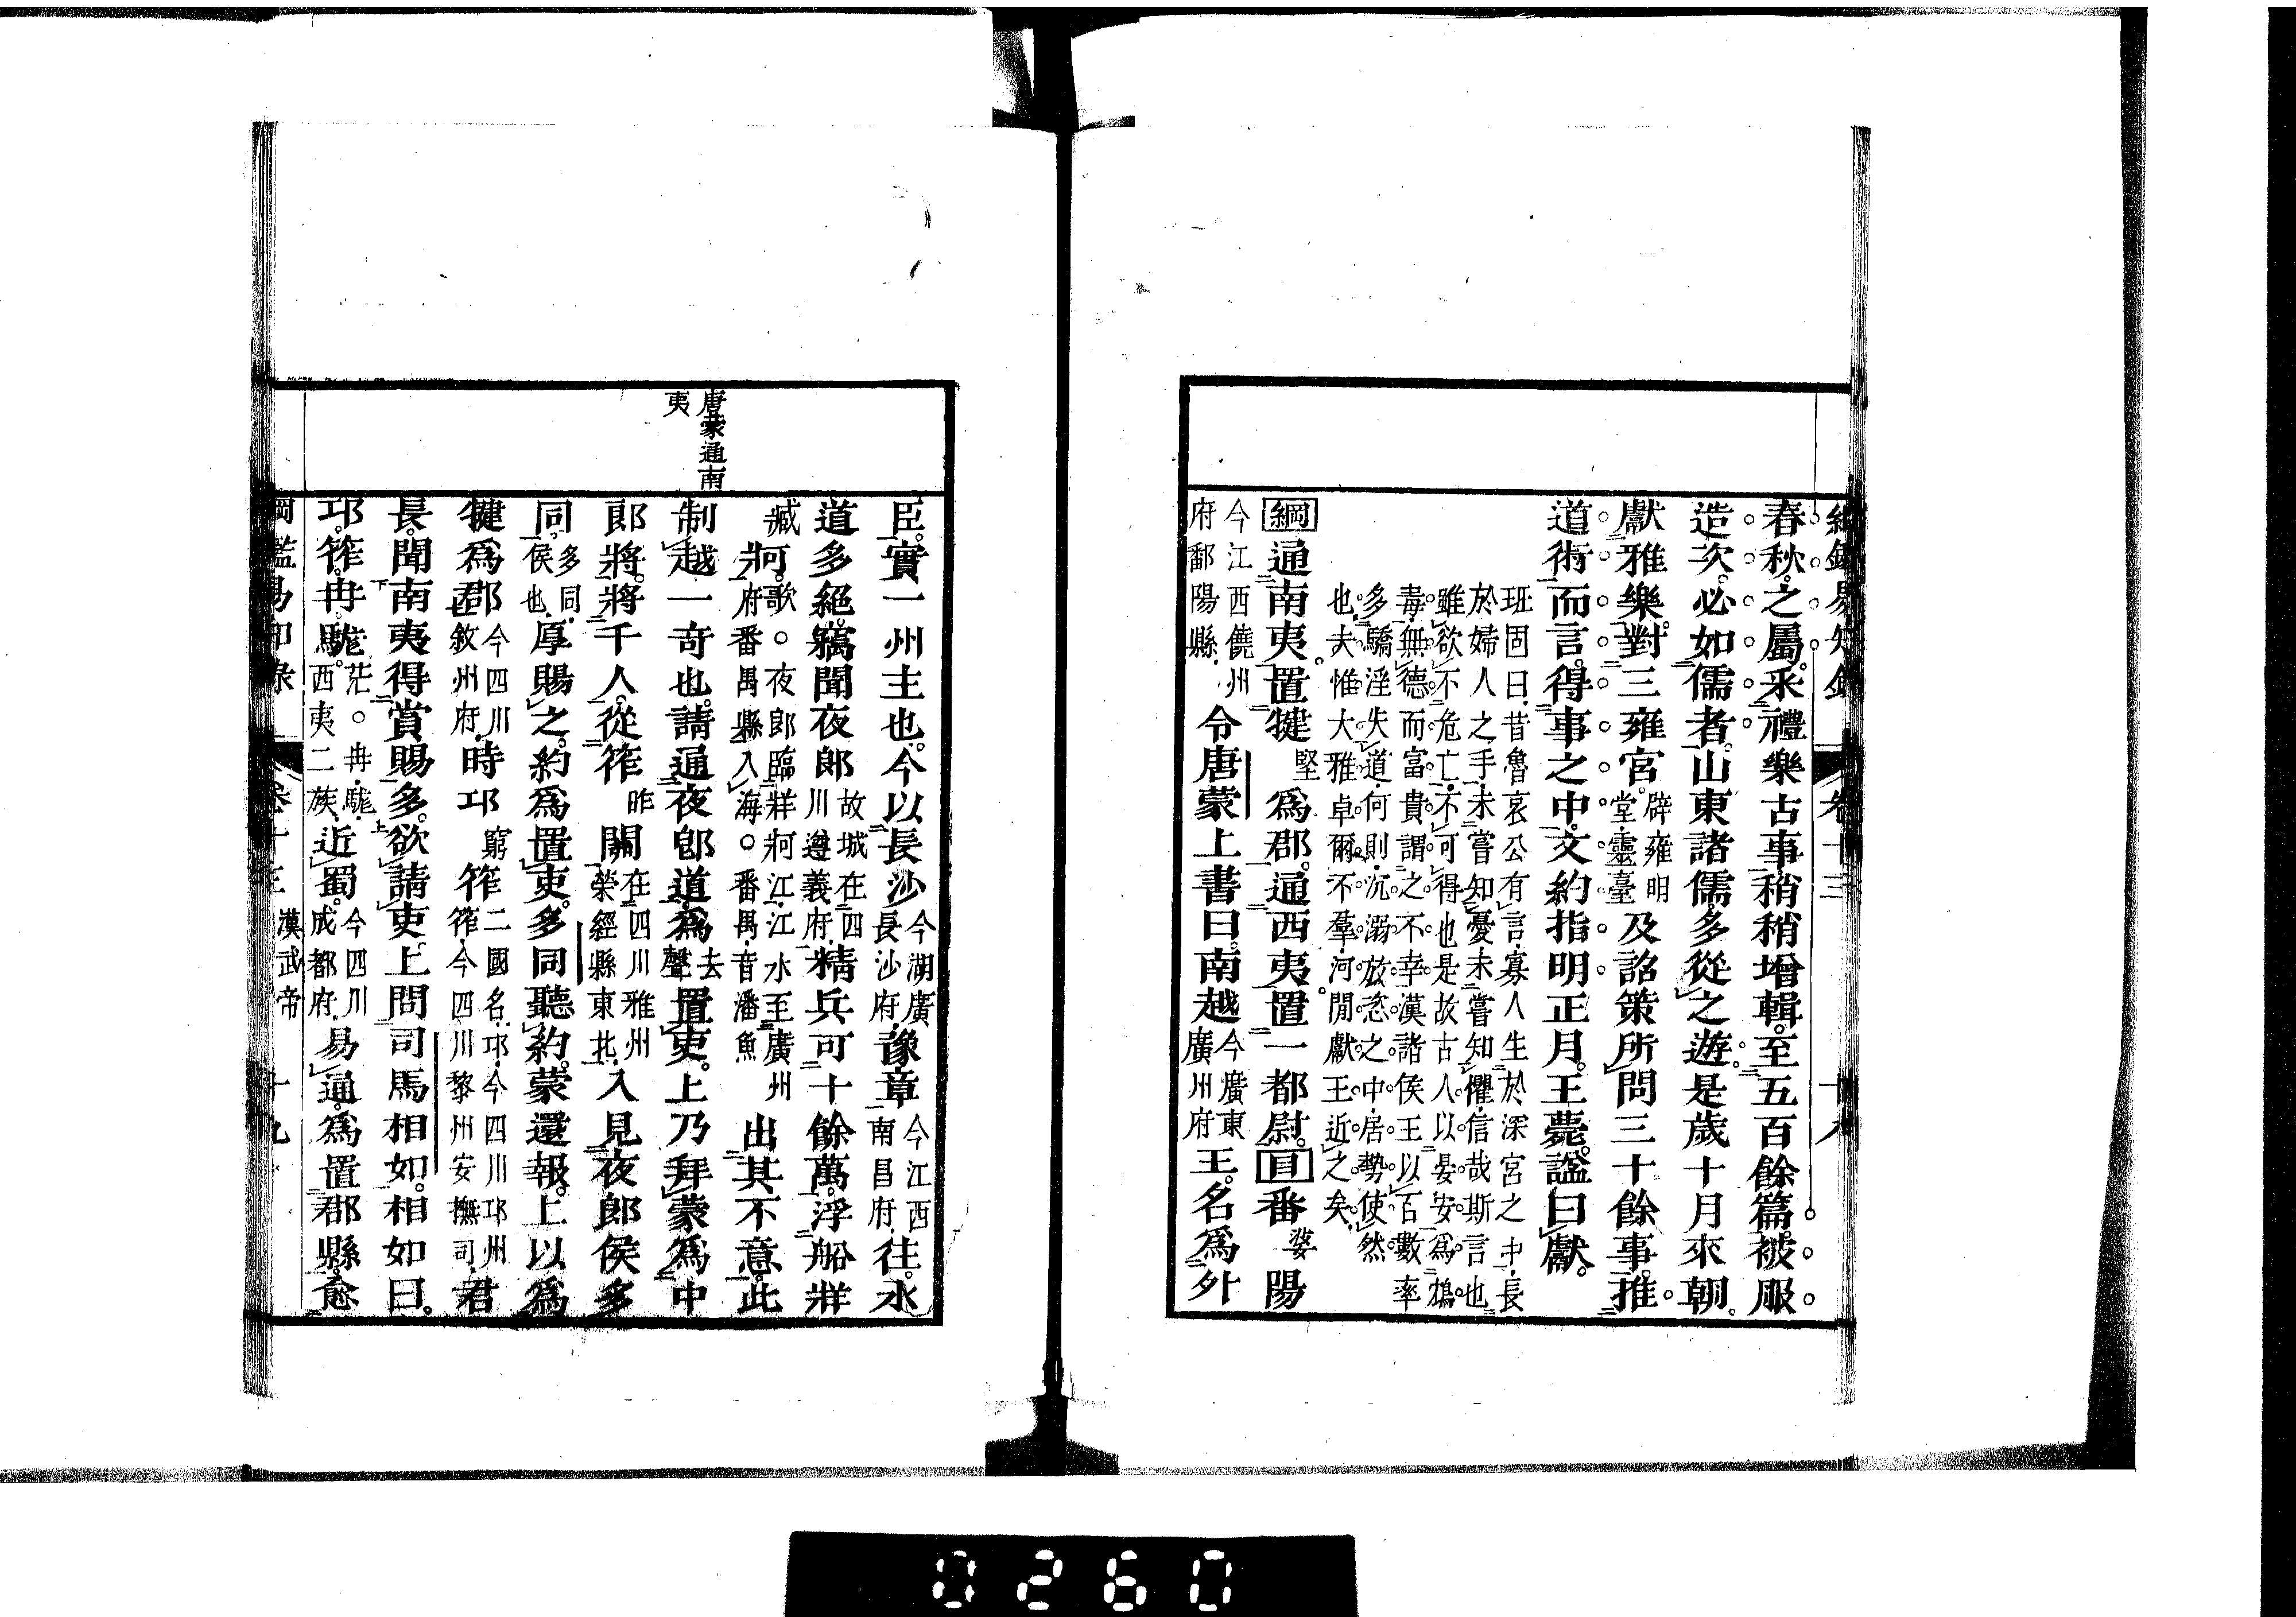 綱鑑易知錄 卷十三 十八
春秋之屬采禮樂古事稍稍增輯至五百餘篇被服
造次必如儒者山東諸儒多從之遊是歲十月來朝
獻雅樂對三雍宮辟雍明堂靈臺及詔策所問三十餘事推
道術而言得事之中文約指明正月王薨諡曰獻
班固曰昔魯哀公有言寡人生於深宮之中長
於婦人之手未嘗知憂未嘗知懼信哉斯言也
雖欲不危亡不可得也是故古人以晏安爲鴆
毒無德而富貴謂之不幸漢諸侯王以百數率
多驕淫失道何則沉溺放恣之中居勢使然
也夫惟大雅卓爾不羣河閒獻王近之矣
綱通南夷置犍堅爲郡通西夷置一都尉目番婆陽
今江西饒州府鄱陽縣令唐蒙上書曰南越今廣東廣州府王名爲外
唐蒙通南
夷
臣實一州主也今以長沙今湖廣長沙府豫章今江西南昌府往水
道多絕竊聞夜郎故城在四川遵義府精兵可十餘萬浮船牂
牁歌○夜郎臨牂牁江江水至廣州府番禺縣入海○番禺音潘魚出其不意此
制越一奇也請通夜郎道爲去聲置吏上乃拜蒙爲中
郎將將千人從筰昨關在四川雅州榮經縣東北入見夜郎侯多
同多同侯也厚賜之約爲置吏多同聽約蒙還報上以爲
犍爲郡今四川敘州府時邛窮筰二國名邛今四川邛州筰今四川黎州安撫司君
長聞南夷得賞賜多欲請吏上問司馬相如相如曰
邛筰冉駹茫○冉駹西夷二族近蜀今四川成都府易通爲置郡縣愈
綱鑑易知錄 卷十三 漢武帝 十九
0260